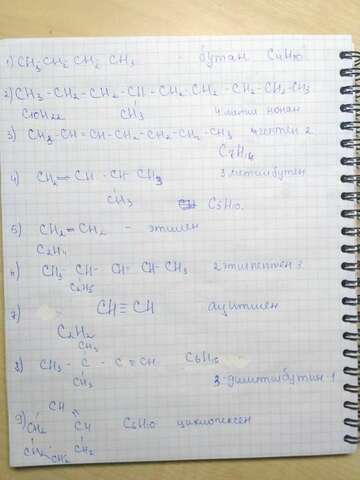 1) CH3 CH2 CH2 CH3 - бутан C4H10
2) CH3 - CH2 - CH2 - CH - CH2 - CH2 - CH2 - CH2 - CH3
C10H22 CH3 4 метил нонан
3) CH3 - CH = CH - CH2 - CH2 - CH2 - CH3 гептен 2
C7H14
4) CH2 = CH - CH - CH3 3 метилбутен
CH3 C5H10
5) CH2 = CH2 - этилен
C2H4
CH3 - CH - CH - CH - CH3 2 этилпентен 3
C2H5
7) CH ≡ CH ацитилен
C2H2
CH3
8) CH3 - C - C ≡ CH C6H10
CH3 3-диметилбутин 1
9) CH
CH2 CH C6H10 циклогексен
CH2 CH2 CH2